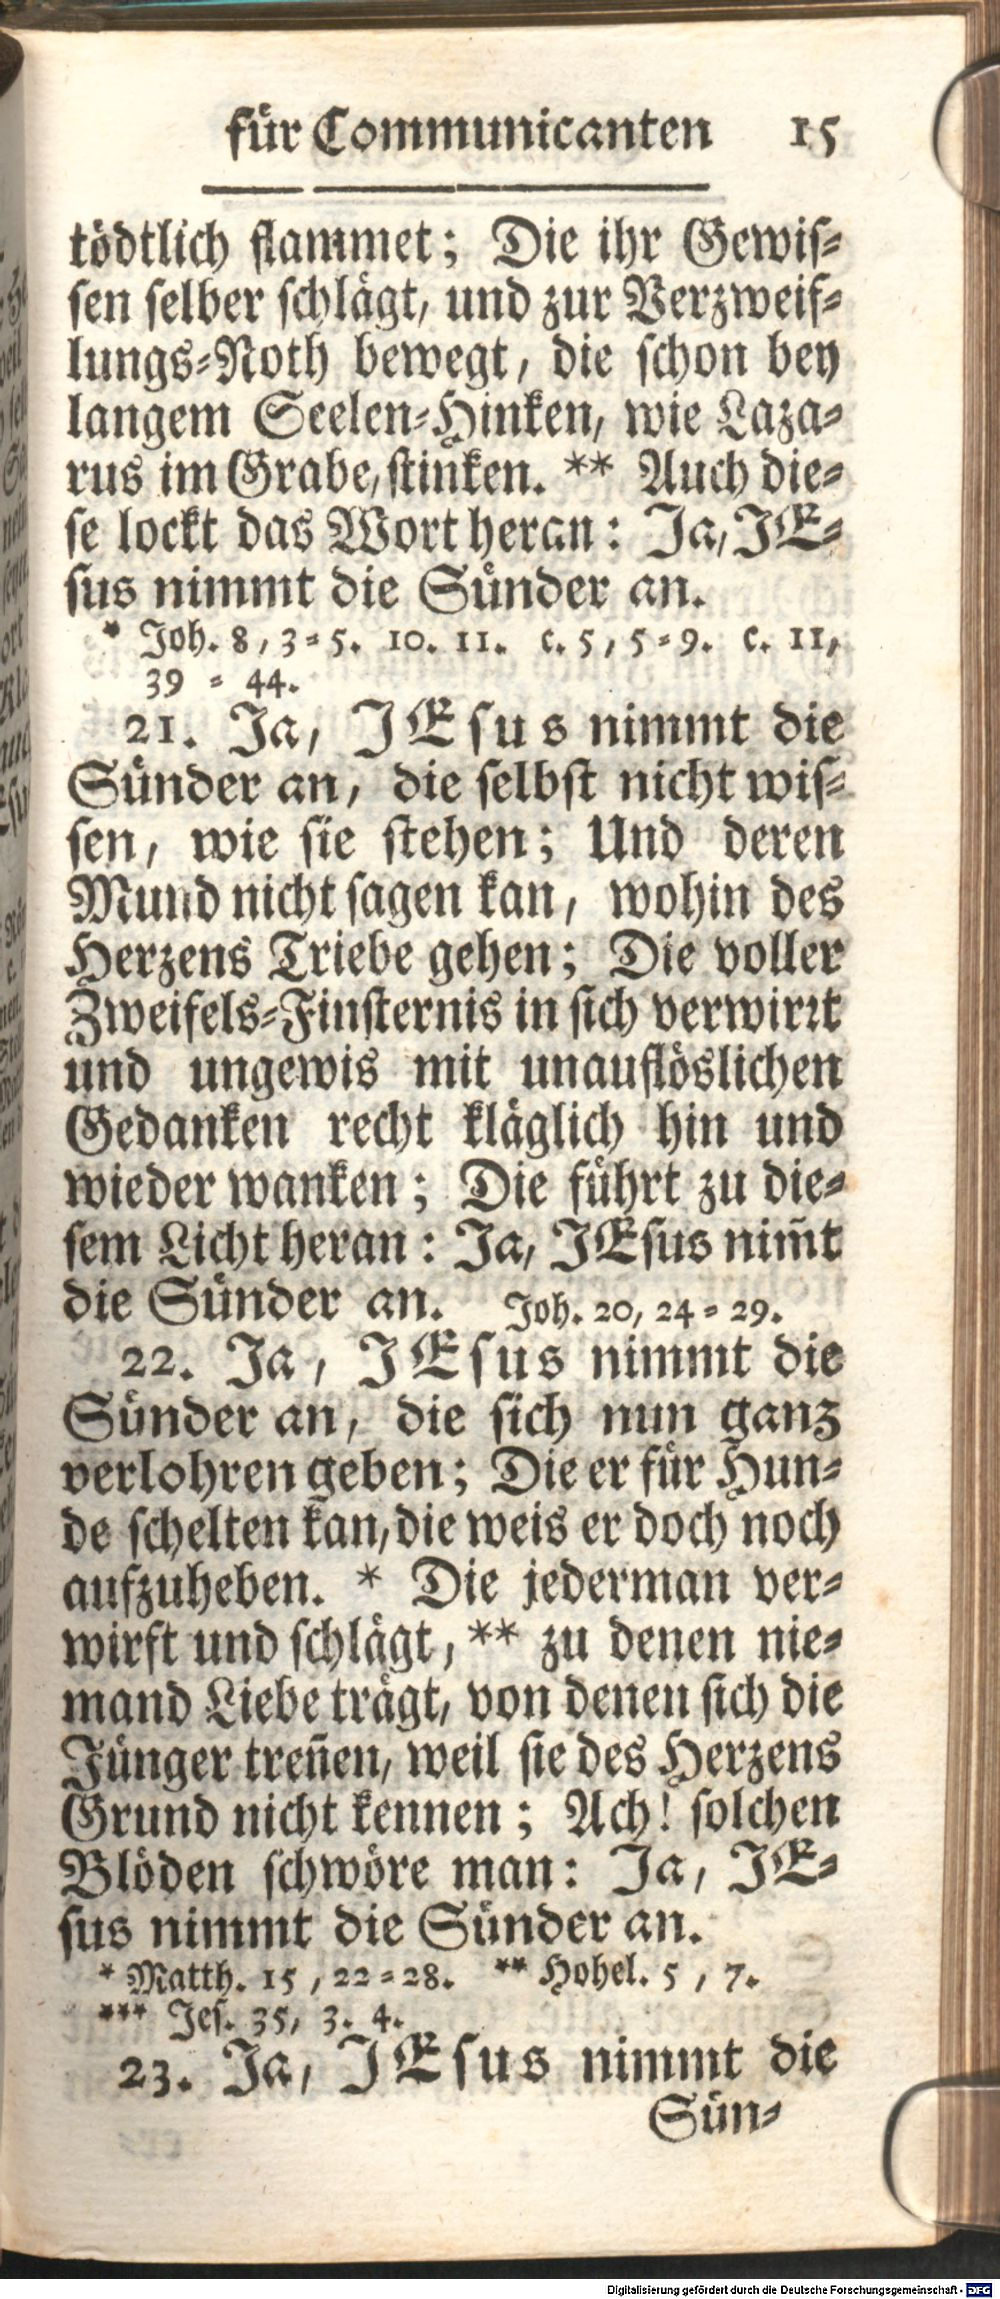 für Communicanten 15
tödtlich flammet; Die ihr Gewiſ-
ſen ſelber ſchlägt, und zur Verzweif-
lungs-Noth bewegt, die ſchon bey
langem Seelen-Hinken, wie Laza-
rus im Grabe, ſtinken. ** Auch die-
ſe lockt das Wort heran: Ja, JE-
ſus nimmt die Sünder an.
* Joh. 8, 3-5. 10. 11. c. 5, 5-9. c. 11,
39 - 44.
21. Ja, JEſus nimmt die
Sünder an, die ſelbſt nicht wiſ-
ſen, wie ſie ſtehen; Und deren
Mund nicht ſagen kan, wohin des
Herzens Triebe gehen; Die voller
Zweifels-Finſternis in ſich verwirꝛt
und ungewis mit unauflöslichen
Gedanken recht kläglich hin und
wieder wanken; Die führt zu die-
ſem Licht heran: Ja, JEſus nim̃t
die Sünder an. Joh. 20, 24-29.
22. Ja, JEſus nimmt die
Sünder an, die ſich nun ganz
verlohren geben; Die er für Hun-
de ſchelten kan, die weis er doch noch
aufzuheben. * Die jederman ver-
wirft und ſchlägt, ** zu denen nie-
mand Liebe trägt, von denen ſich die
Jünger treñen, weil ſie des Herzens
Grund nicht kennen; Ach! ſolchen
Blöden ſchwöre man: Ja, JE-
ſus nimmt die Sünder an.
* Matth. 15, 22-28. ** Hohel. 5, 7.
*** Jeſ. 35, 3. 4.
23. Ja, JEſus nimmt die
Sün-
Digitalisierung gefördert durch die Deutsche Forschungsgemeinschaft - DFG